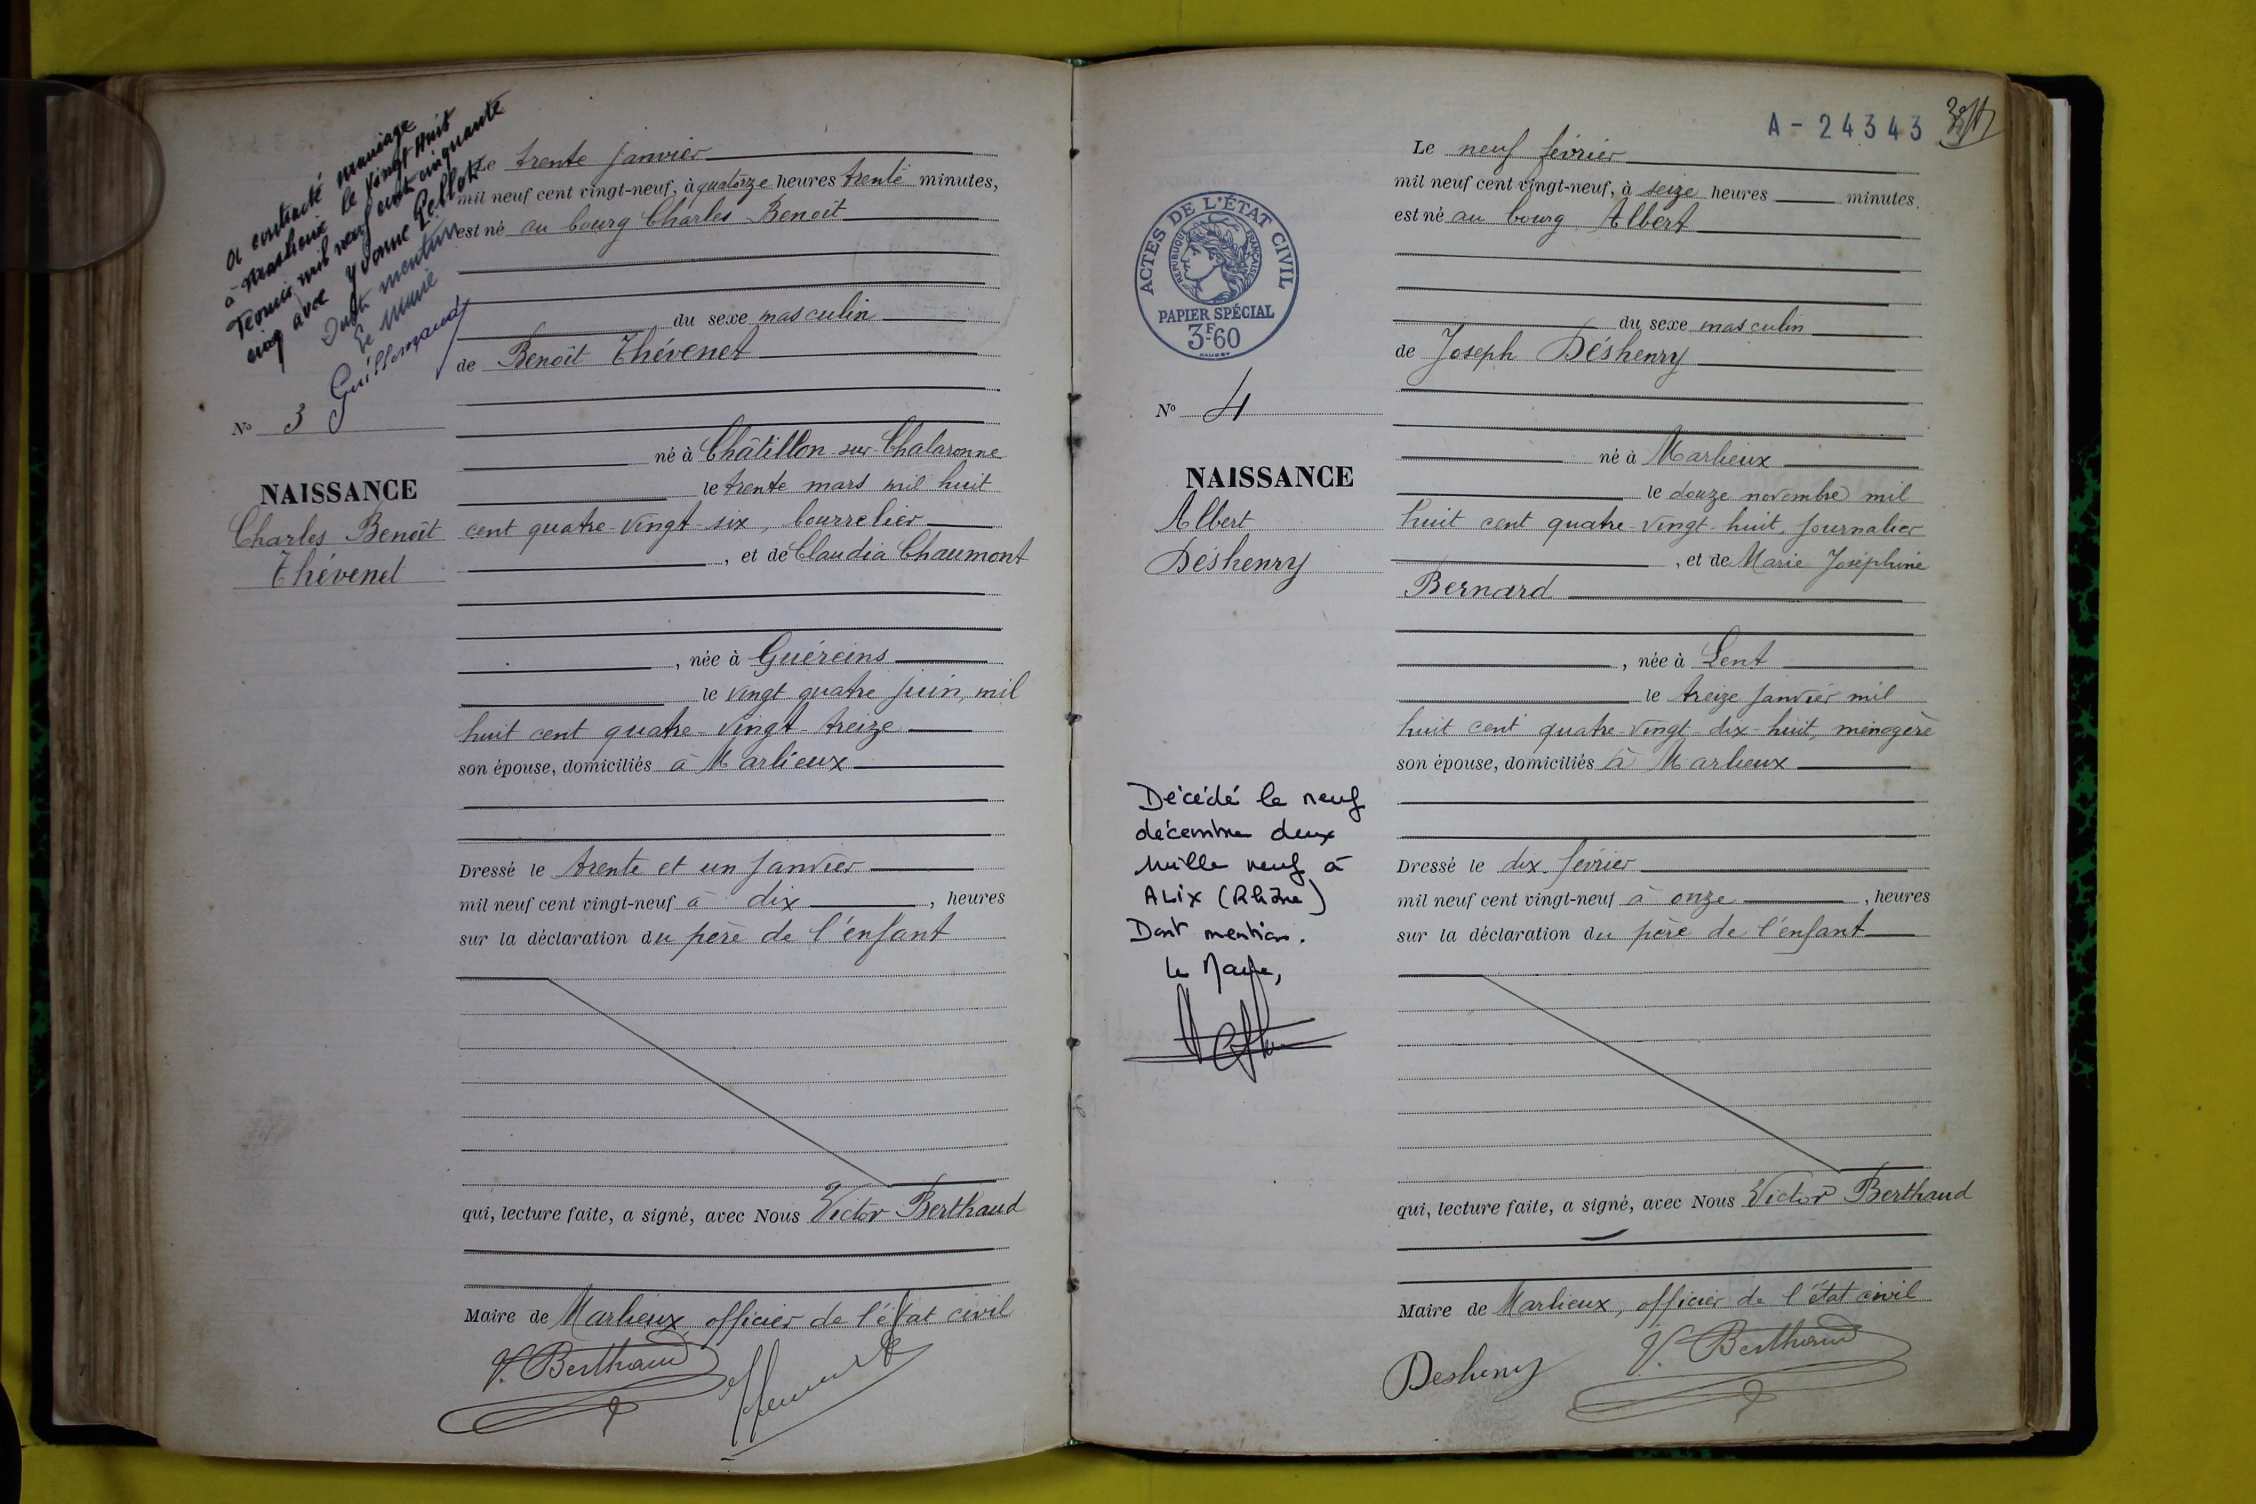 a contracté mariage
à Marlieux le vingt huit
février mil neuf cent cinquante
cinq avec Yvonne
Dont mention
Le Maire
Guillemaud
N° 3
NAISSANCE
Charles Benoît
Thévenet
Le trente janvier
mil neuf cent vingt-neuf, à quatorze heures trente minutes,
est né au bourg Charles Benoît
du sexe masculin
de Benoît Thévenet
né à Châtillon sur Chalaronne
le trente mars mil huit
cent quatre-vingt-six, bourrelier
, et de Claudia Chaumont
, née à Guéreins
le vingt quatre juin, mil
huit cent quatre-vingt-treize
son épouse, domiciliés à Marlieux
Dressé le trente et un janvier
mil neuf cent vingt-neuf à dix , heures
sur la déclaration du père de l'enfant
qui, lecture faite, a signé, avec Nous Victor Berthaud
Maire de Marlieux, officier de l'état civil
V. Berthaud
A - 24343
ACTES DE L'ÉTAT CIVIL
RÉPUBLIQUE FRANÇAISE
PAPIER SPÉCIAL
3F60
N° 4
NAISSANCE
Albert
Déshenry
Décédé le neuf
décembre deux
mille neuf à
Alix (Rhône)
Dont mention.
Le Maire,
Le neuf février
mil neuf cent vingt-neuf, à seize heures minutes.
est né au bourg Albert
du sexe masculin
de Joseph Déshenry
né à Marlieux
le douze novembre mil
huit cent quatre-vingt-huit, journalier
, et de Marie Joséphine
Bernard
, née à Lent
le treize janvier mil
huit cent quatre-vingt-dix-huit, ménagère
son épouse, domiciliés à Marlieux
Dressé le dix février
mil neuf cent vingt-neuf à onze , heures
sur la déclaration du père de l'enfant
qui, lecture faite, a signé, avec Nous Victor Berthaud
Maire de Marlieux, officier de l'état civil
Deshenry
V. Berthaud